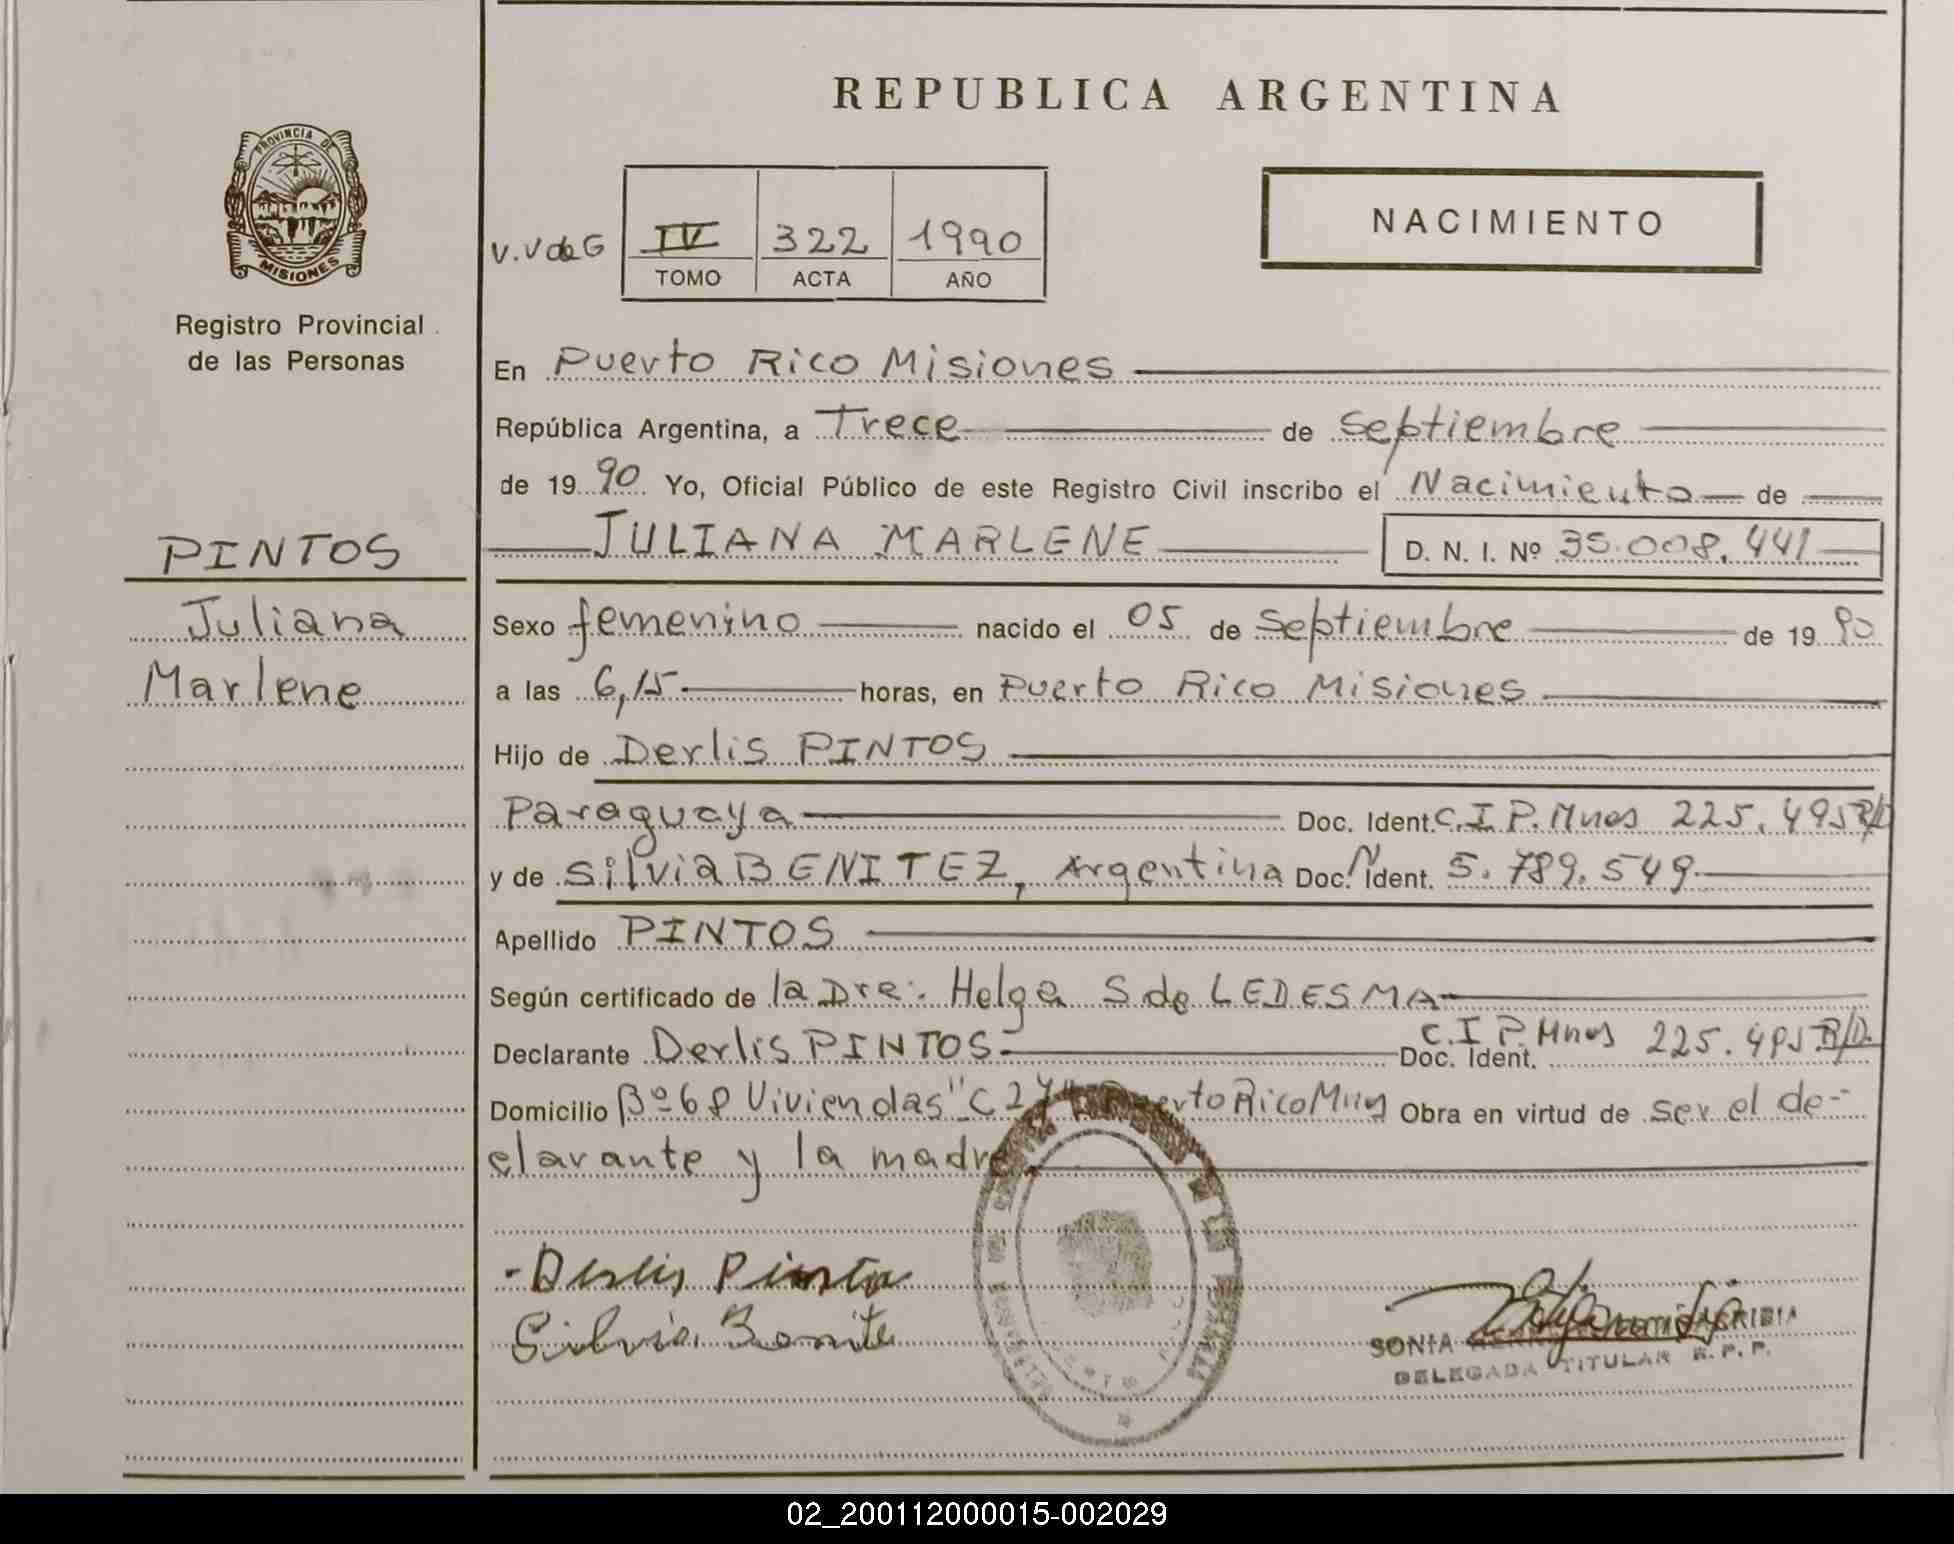 REPUBLICA ARGENTINA
PROVINCIA DE
MISIONES
Registro Provincial
de las Personas
NACIMIENTO
V.V de G
IV 322 1990
TOMO ACTA AÑO
En Puerto Rico Misiones
República Argentina, a Trece de Septiembre
de 19 90 Yo, Oficial Público de este Registro Civil inscribo el Nacimiento de
PINTOS
JULIANA MARLENE D. N. I. Nº 35.008.441
Juliana
Marlene
Sexo femenino nacido el 05 de Septiembre de 19 90
a las 6,15 horas, en Puerto Rico Misiones
Hijo de Derlis PINTOS
Paraguaya Doc. Ident. C.I.P. Mnes 225.495 R/D
y de Silvia BENITEZ, Argentina Doc. Ident. Nº 5.789.549
Apellido PINTOS
Según certificado de la Dra. Helga S de LEDESMA
Declarante Derlis PINTOS Doc. Ident. C.I.P. Mnes 225.495 R/D.
Domicilio Bº 68 Viviendas "C 27" Puerto Rico Mnes Obra en virtud de ser el de-
clarante y la madre
Derlis Pintos
Silvia Benite
SONIA
DELEGADA TITULAR R.P.P.
02_200112000015-002029